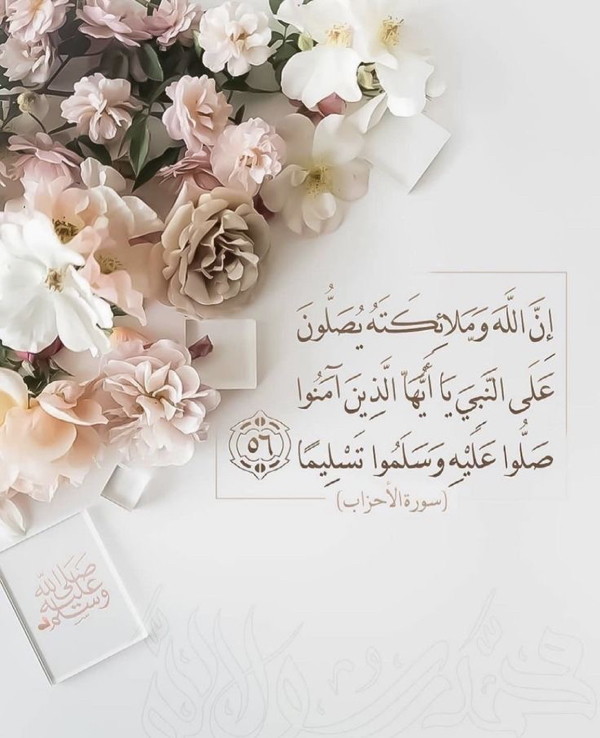 إِنَّ اللَّهَ وَمَلَائِكَتَهُ يُصَلُّونَ
عَلَى النَّبِيِّ يَا أَيُّهَا الَّذِينَ آمَنُوا
صَلُّوا عَلَيْهِ وَسَلِّمُوا تَسْلِيمًا ٥٦
(سورة الأحزاب)
صلى الله
عليه
وسلم
محمد رسول الله